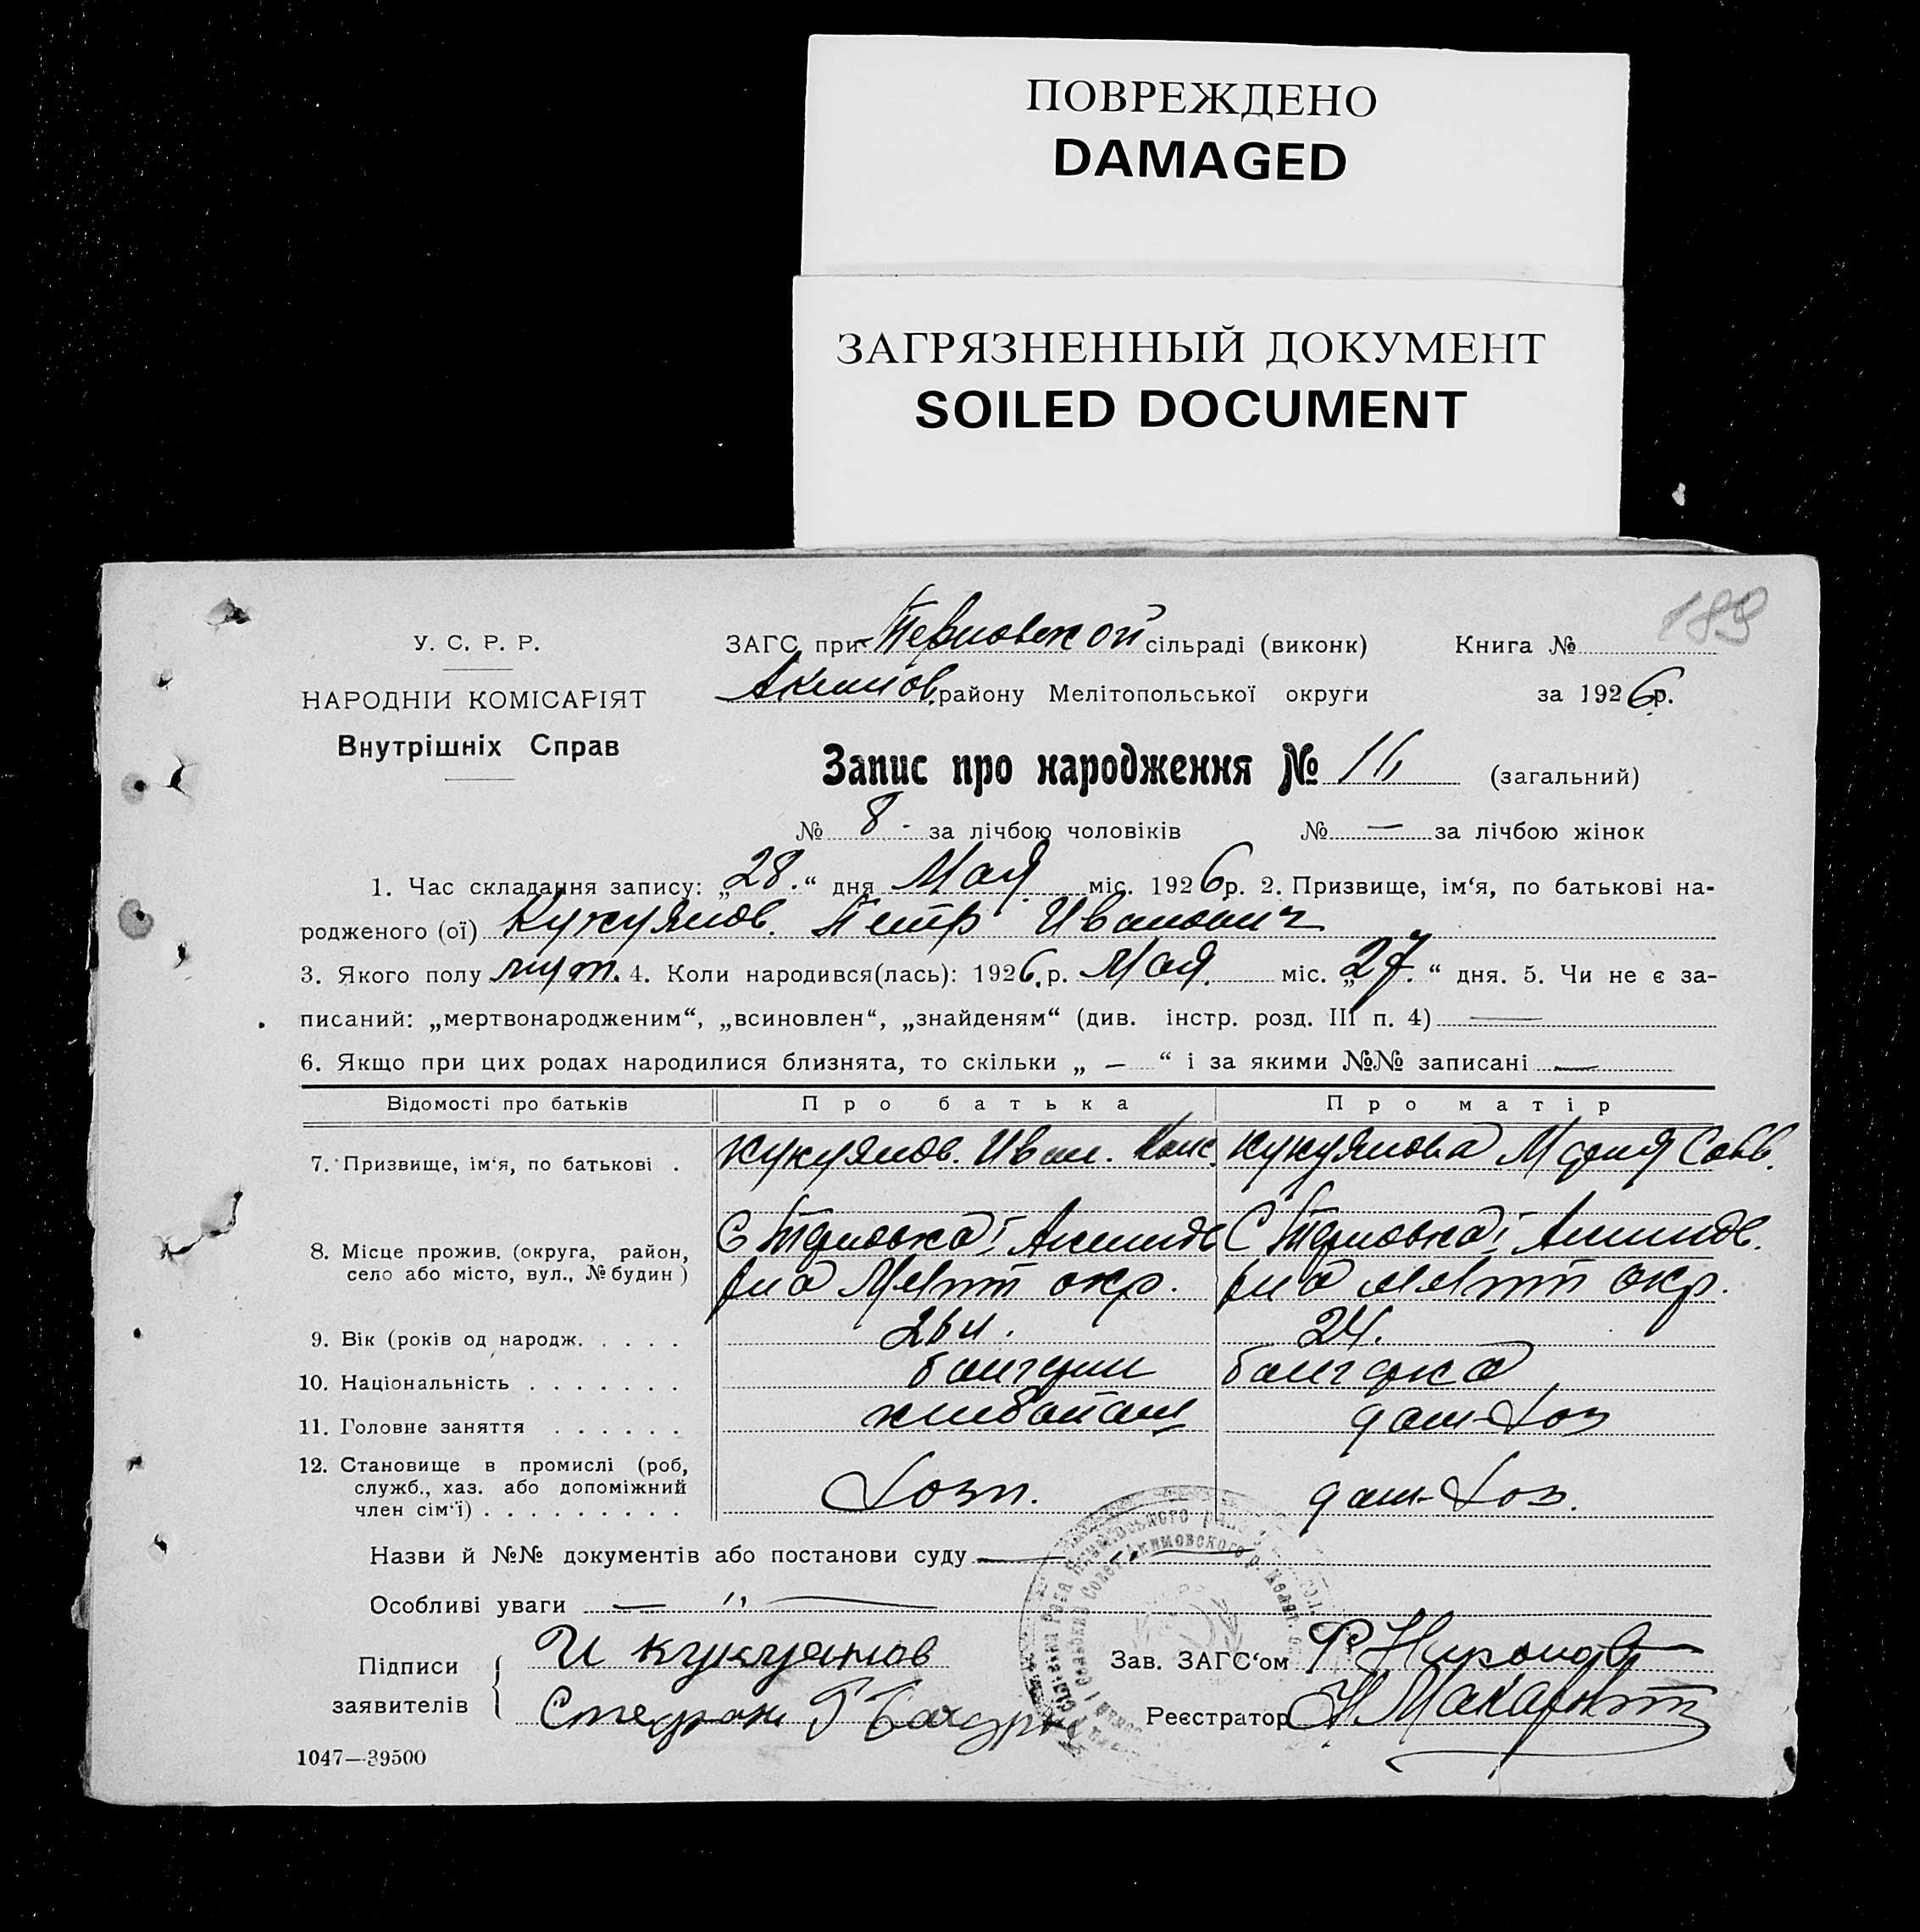 ПОВРЕЖДЕНО
DAMAGED
ЗАГРЯЗНЕННЫЙ ДОКУМЕНТ
SOILED DOCUMENT
189
У. С. Р. Р.
НАРОДНІЙ КОМІСАРІЯТ
Внутрішніх Справ
ЗАГС при Терновской сільраді (виконк) Книга №
Акимов. району Мелітопольської округи за 1926 р.
Запис про народження № (загальний)
№ 8 - за лічбою чоловіків № — за лічбою жінок
1. Час складання запису: „28.“ дня Мая міс. 1926 р. 2. Призвище, ім‘я, по батькові на-
родженого (ої) Кукуянов. Петр Иванович
3. Якого полу 4. Коли народився(лась): 1926. р. Мая. міс. „27.“ дня. 5. Чи не є за-
писаний: „мертвонародженим“, „всиновлен“, „знайденям“ (див. інстр. розд. III п. 4) —
6. Якщо при цих родах народилися близнята, то скільки „ — “ і за якими №№ записані —
Відомості про батьків Про батька Про матір
7. Призвище, ім‘я, по батькові . Кукуянов. Иван. Конс. Кукуянова Мария Савв.
8. Місце прожив. (округа, район, село або місто, вул., № будин) С Терновка, Акимов С Терновка, Акимов.
р на Мелит окр. р на Мелит окр.
9. Вік (років од народж. . . . . 26 л. 24.
10. Національність . . . . . . . болгарин болгарка
11. Головне заняття . . . . . . хлебопаш дом-хоз
12. Становище в промислі (роб, служб., хаз. або допоміжний член сім‘ї) . . . . . . . . . хозя. дом-хоз.
Назви й №№ документів або постанови суду — „ —
Особливі уваги — „ —
Підписи заявителів { И Кукуянов
Стефан Г
Зав. ЗАГС‘ом
Реєстратор Н Макар
1047—39500